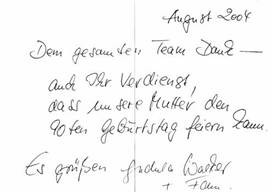 August 2004
Dem gesamten Team Dank —
auch Ihr Verdienst,
dass unsere Mutter den
90ten Geburtstag feiern kann.
Es grüßen
+ Fam.